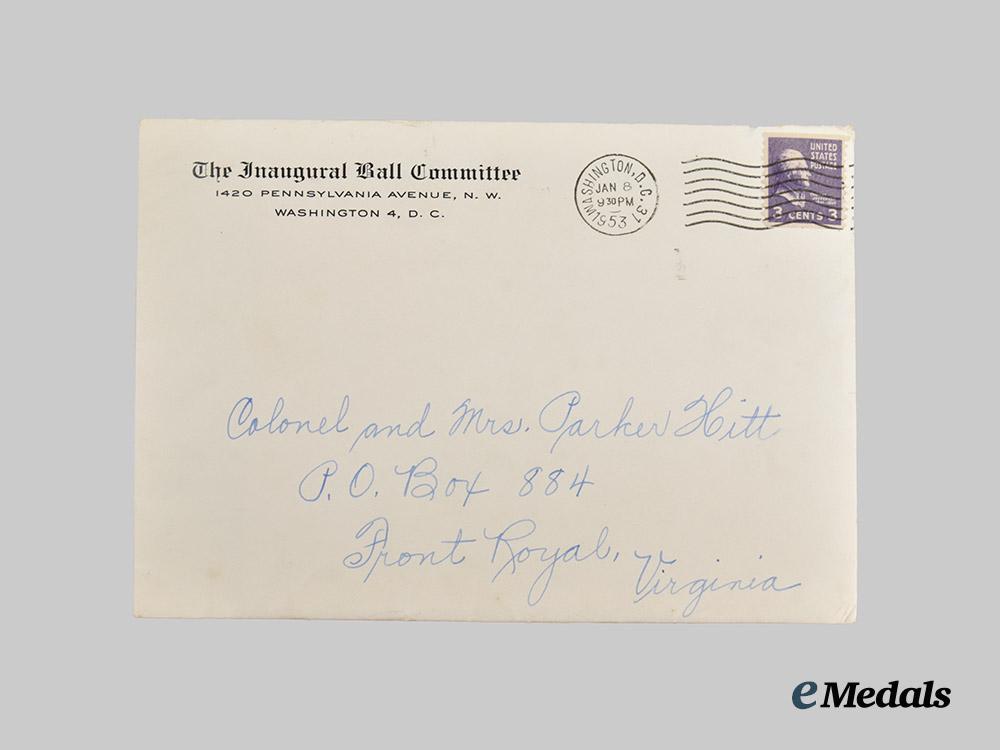 The Inaugural Ball Committee
1420 PENNSYLVANIA AVENUE, N. W.
WASHINGTON 4, D. C.
WASHINGTON, D.C. 31
JAN 8
9 30 PM
1953
UNITED
STATES
POSTAGE
3 CENTS 3
Colonel and Mrs. Parker Hitt
P. O. Box 884
Front Royal, Virginia
eMedals